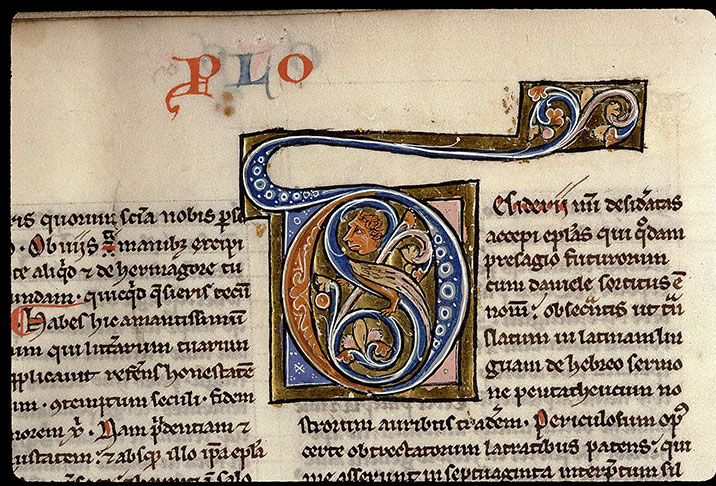 PLO
ris quorum sciā nobis pse
. Obuiis manibȝ excipi
te aliqd ⁊ de hermagore tu
undam. quicqd qsieris tecū
Habes hic amantissimū
um qui litterarum tuarum
applicauit
im. ꝯtemptum seculi. fidem
morem xp̄. Nam prudentiam ⁊
iustatem: ⁊ absq illo ipa epla
D
Esiderii mī desidatas
accepi eplas qui qdam
presagio futurorum
cum daniele sortitus ē
nom̄: obsecātis ut tn̄
slatum in latinam lin
guam de hebreo sermo
ne pentatheucum no
strorum auribus tradem. Periculosum opꝰ
certe obtrectatorum latratibus patens: qui
me asserunt in septuaginta interptum sil